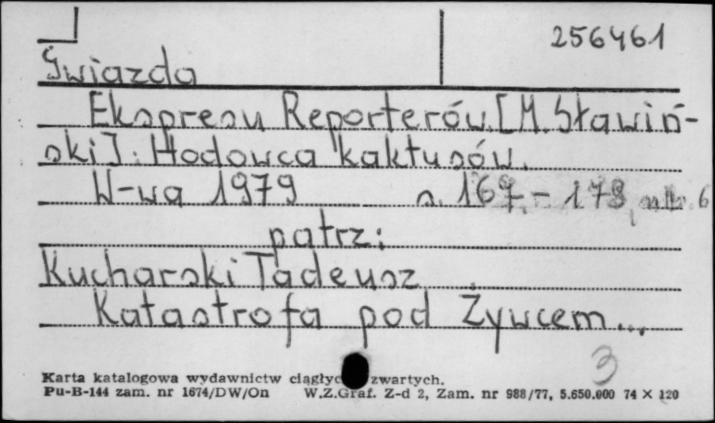 256461
Gwiazda
Ekspresu Reporterów [M. Sławiń-
ski]: Hodowca kaktusów.
W-wa 1979 s. 167 - 178, nlb. 6
patrz:
Kucharski Tadeusz
Katastrofa pod Żywcem...
3
Karta katalogowa wydawnictw ciągłyc zwartych.
Pu-B-144 zam. nr 1674/DW/On W.Z.Graf. Z-d 2, Zam. nr 988/77, 5.650.000 74 × 120